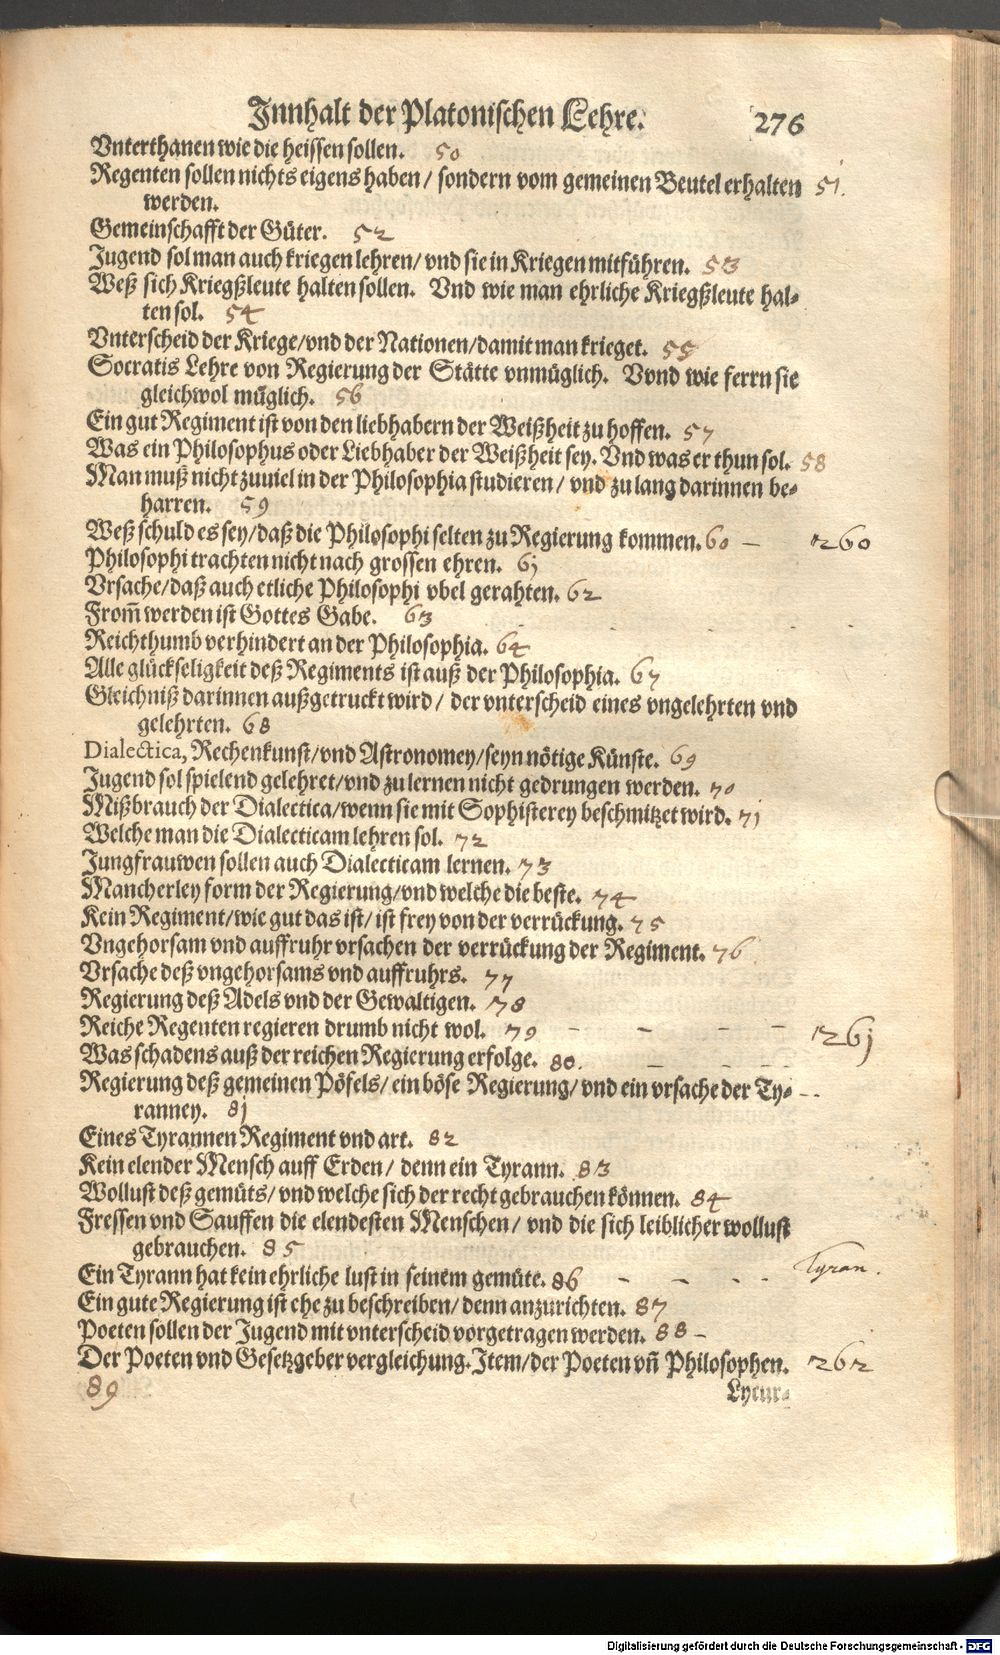 Innhalt der Platonischen Lehre. 276
Vnterthanen wie die heissen sollen. 50
Regenten sollen nichts eigens haben / sondern vom gemeinen Beutel erhalten 51.
werden.
Gemeinschafft der Güter. 52
Jugend sol man auch kriegen lehren / vnd sie in Kriegen mitführen. 53
Weß sich Kriegßleute halten sollen. Vnd wie man ehrliche Kriegßleute hal-
ten sol. 54
Vnterscheid der Kriege / vnd der Nationen / damit man krieget. 55
Socratis Lehre von Regierung der Stätte vnmüglich. Vvnd wie ferrn sie
gleichwol müglich. 56
Ein gut Regiment ist von den liebhabern der Weißheit zu hoffen. 57
Was ein Philosophus oder Liebhaber der Weißheit sey. Vnd was er thun sol. 58
Man muß nicht zuuiel in der Philosophia studieren / vnd zu lang darinnen be-
harren. 59
Weß schuld es sey / daß die Philosophi selten zu Regierung kommen. 60 – 1260
Philosophi trachten nicht nach grossen ehren. 6j
Vrsache / daß auch etliche Philosophi vbel gerahten. 62
From̃ werden ist Gottes Gabe. 63
Reichthumb verhindert an der Philosophia. 64
Alle glückseligkeit deß Regiments ist auß der Philosophia. 67
Gleichniß darinnen außgetruckt wird / der vnterscheid eines vngelehrten vnd
gelehrten. 68
Dialectica, Rechenkunst / vnd Astronomey / seyn nötige Künste. 69
Jugend sol spielend gelehret / vnd zu lernen nicht gedrungen werden. 70
Mißbrauch der Dialectica / wenn sie mit Sophisterey beschmitzet wird. 7j
Welche man die Dialecticam lehren sol. 72
Jungfrauwen sollen auch Dialecticam lernen. 73
Mancherley form der Regierung / vnd welche die beste. 74
Kein Regiment / wie gut das ist / ist frey von der verrückung. 75
Vngehorsam vnd auffruhr vrsachen der verrückung der Regiment. 76
Vrsache deß vngehorsams vnd auffruhrs. 77
Regierung deß Adels vnd der Gewaltigen. 78
Reiche Regenten regieren drumb nicht wol. 79 – – – – 126j
Was schadens auß der reichen Regierung erfolge. 80.
Regierung deß gemeinen Pöfels / ein böse Regierung / vnd ein vrsache der Ty-
ranney. 8j
Eines Tyrannen Regiment vnd art. 82
Kein elender Mensch auff Erden / denn ein Tyrann. 83
Wollust deß gemüts / vnd welche sich der recht gebrauchen können. 84
Fressen vnd Sauffen die elendesten Menschen / vnd die sich leiblicher wollust
gebrauchen. 85
Ein Tyrann hat kein ehrliche lust in seinem gemüte. 86 – – – – Tyran.
Ein gute Regierung ist ehe zu beschreiben / denn anzurichten. 87
Poeten sollen der Jugend mit vnterscheid vorgetragen werden. 88 –
Der Poeten vnd Gesetzgeber vergleichung. Item / der Poeten vñ Philosophen. 1262
89 Lycur-
Digitalisierung gefördert durch die Deutsche Forschungsgemeinschaft - DFG